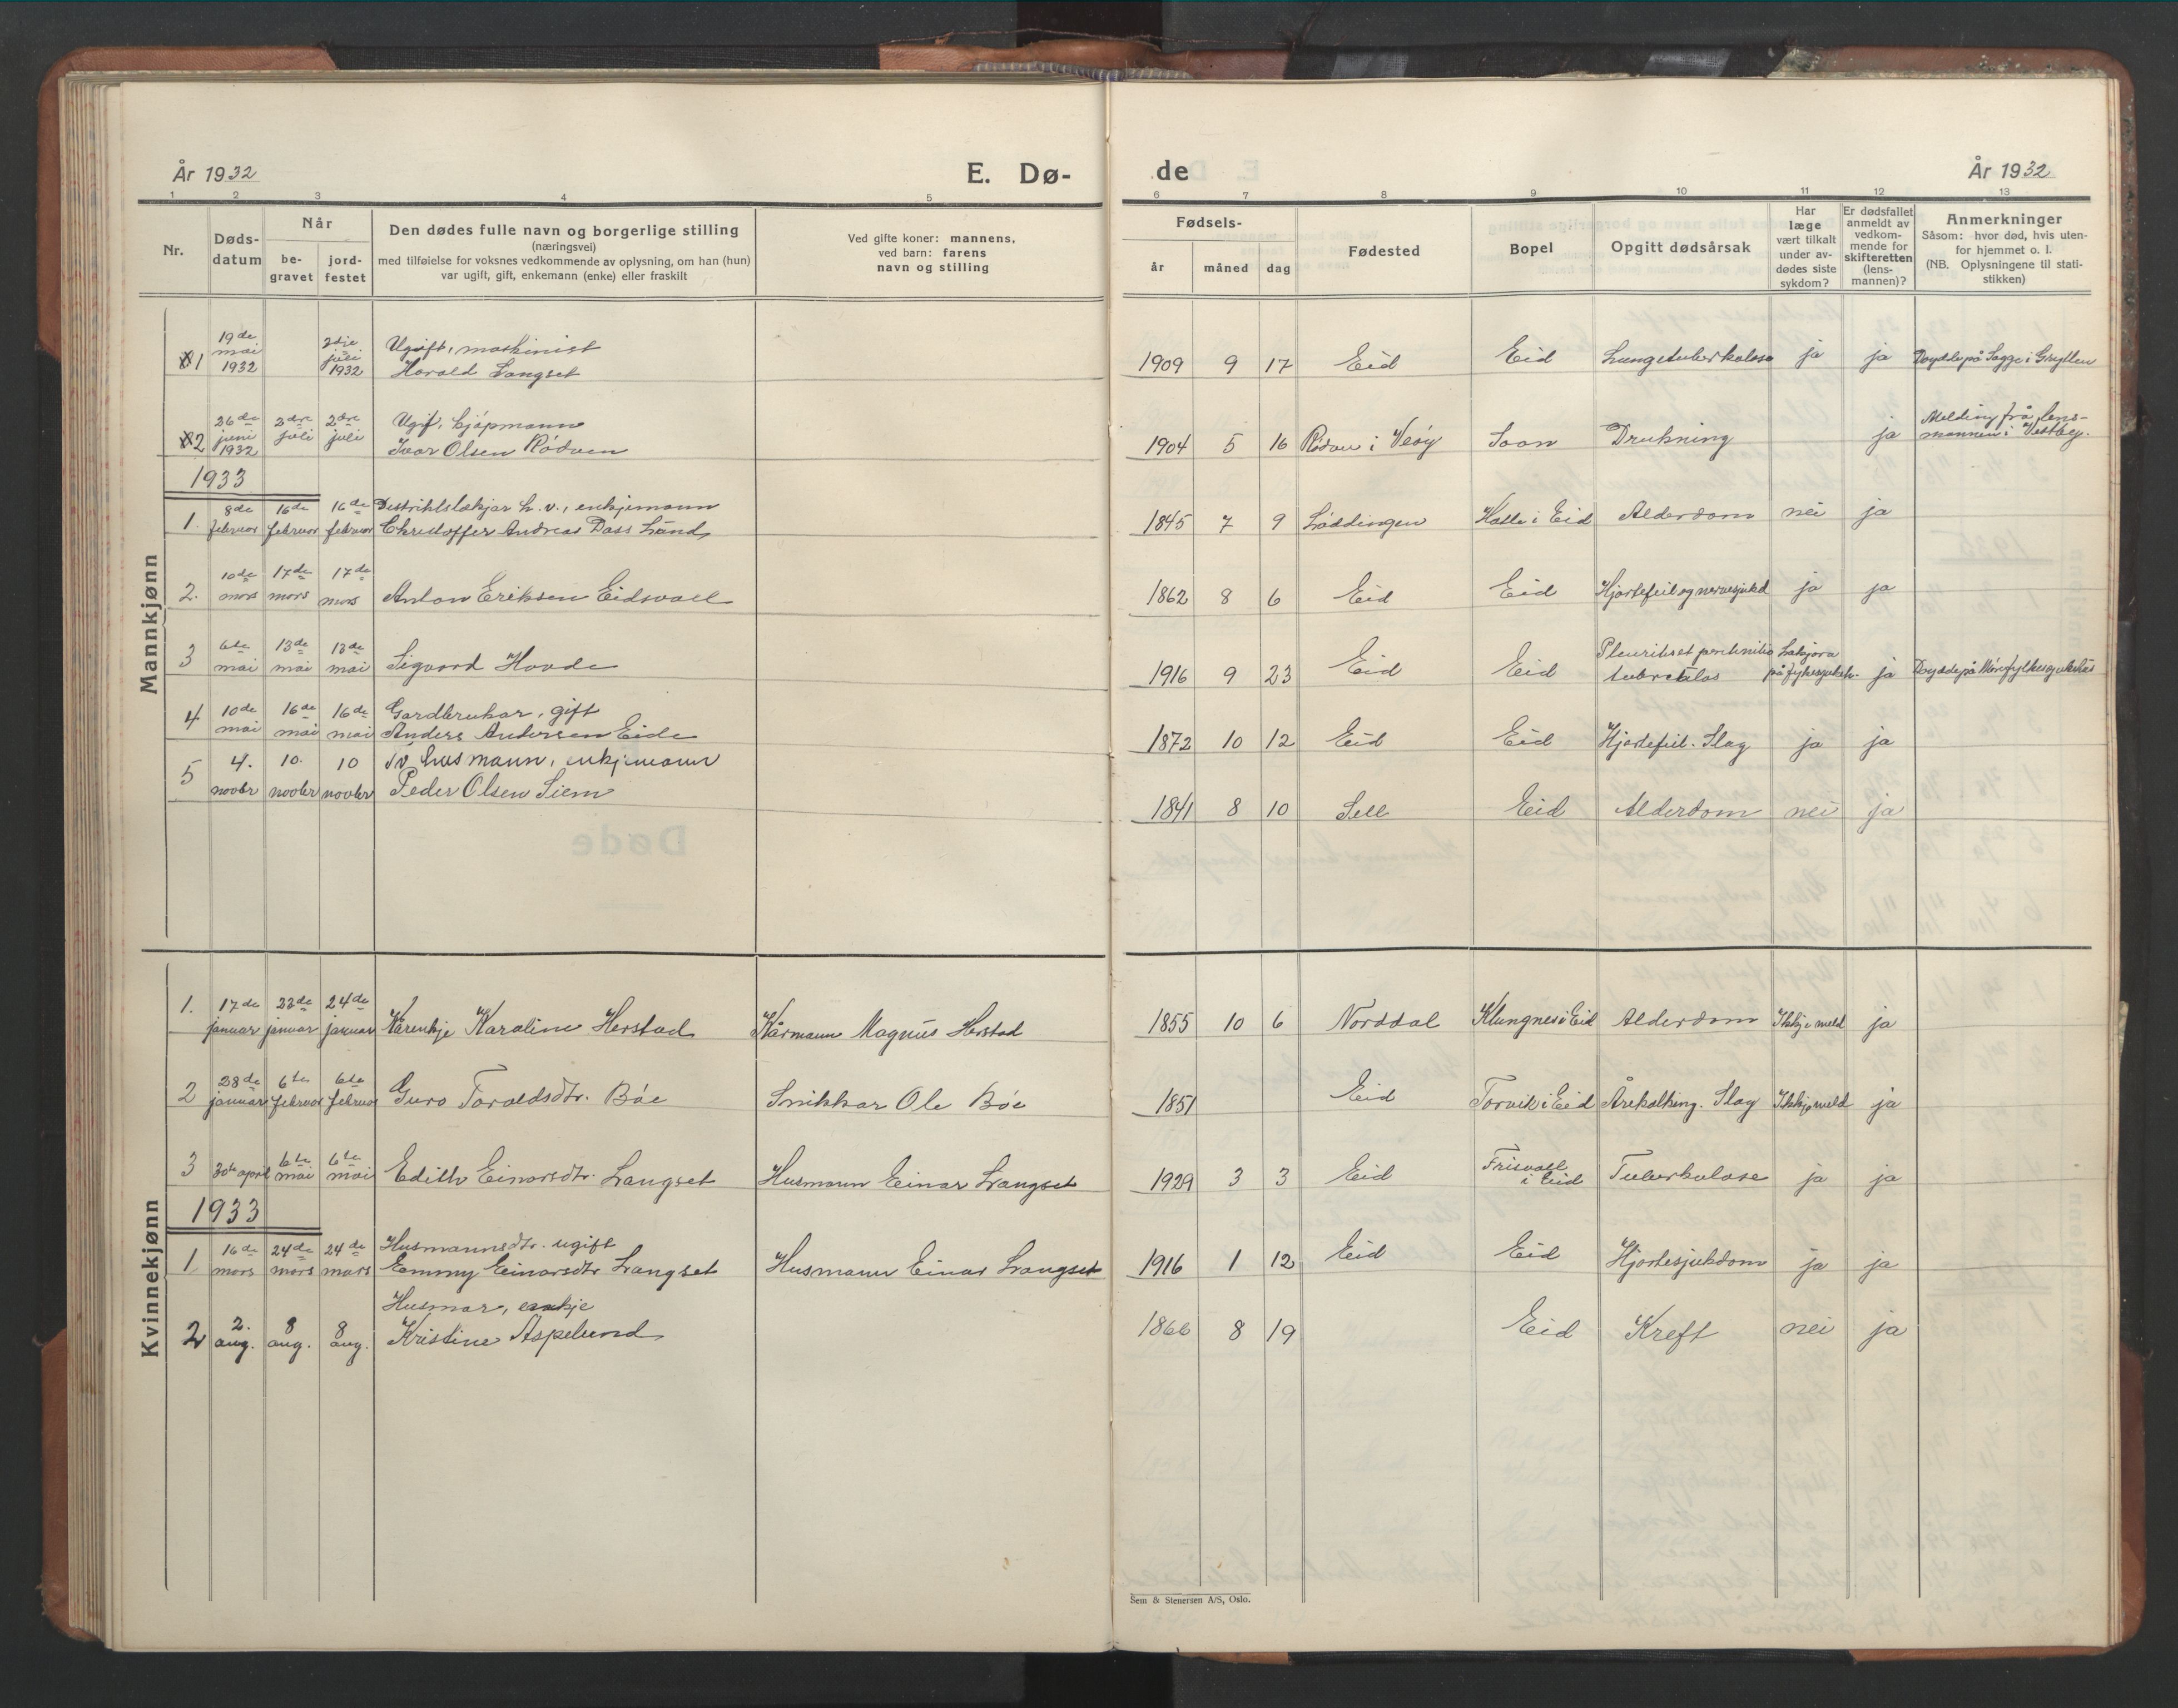 År 1932
E. Dø-
de
År 1932
1 2 3 4 5 6 7 8 9 10 11 12 13
Nr.
Døds-
datum
Når
be-
gravet
jord-
festet
Den dødes fulle navn og borgerlige stilling
(næringsvei)
med tilføielse for voksnes vedkommende av oplysning, om han (hun)
var ugift, gift, enkemann (enke) eller fraskilt
Ved gifte koner: mannens,
ved barn: farens
navn og stilling
Fødsels-
år måned dag
Fødested
Bopel
Opgitt dødsårsak
Har
læge
vært tilkalt
under av-
dødes siste
sykdom?
Er dødsfallet
anmeldt av
vedkom-
mende for
skifteretten
(lens-
mannen)?
Anmerkninger
Såsom: hvor død, hvis uten-
for hjemmet o. l.
(NB. Oplysningene til stati-
stikken)
Mannkjønn
1 19de mai 1932 juli 1932 Ugift, maskinist
Harald Langset 1909 9 17 Eid Eid Lungetuberkulose ja ja Døydde på i
2 26de juni 1932 2dre juli 2dre juli
Ivar Olsen Rødven 1904 5 16 Rødven i Veøy Soon Drukning ja Melding frå lens-
mannen i Vestby.
1933
1. 8de februar 16de februar 16de februar Distriktslækjar enkjemann
Christoffer Andreas Dass Lund 1845 7 9 Løddingen Hatle i Eid Alderdom nei ja
2. 10de mars 17de mars 17de mars Anton Eriksen Eidsvall 1862 8 6 Eid Eid Hjartefeil og nervesjukd ja ja
3 6te mai 13de mai 13de mai Sigvard Hovde 1916 9 23 Eid Eid ja Døydde på
4 10de mai 16de mai 16de mai Gardbrukar, gift
Anders Andersen Eide 1872 10 12 Eid Eid Hjartefeil. Slag ja ja
5 4. novbr 10. novbr 10 novbr husmann, enkjemann
Peder Olsen Siem 1841 8 10 Sell Eid Alderdom nei ja
Kvinnekjønn
1. 17de januar 23de januar 24de januar Kårenkje Karoline Herstad Kårmann Magnus Herstad 1855 10 6 Norddal Klungnes i Eid Alderdom Ikkje meld ja
2 28de januar 6te februar 6te februar Guro Toraldsdtr. Bøe Snikkar Ole Bøe 1851 Eid Torvik i Eid Årekalking. Slag Ikkje meld ja
3 30te april 6te mai 6te mai Edith Einarsdtr. Langset Husmann Einar Langset 1929 3 3 Eid Frisvoll
i Eid Tuberkulose ja ja
1933
1 16de mars 24de mars 24de mars Husmannsdtr. ugift
Emmy Einarsdtr Langset Husmann Einar Langset 1916 1 12 Eid Eid Hjartesjukdom ja ja
2 2. aug. 8 aug. 8 aug. Husmor, enkje
Kristine Aspelund 1866 8 19 Eid Kreft nei ja
Sem & Stenersen A/S, Oslo.